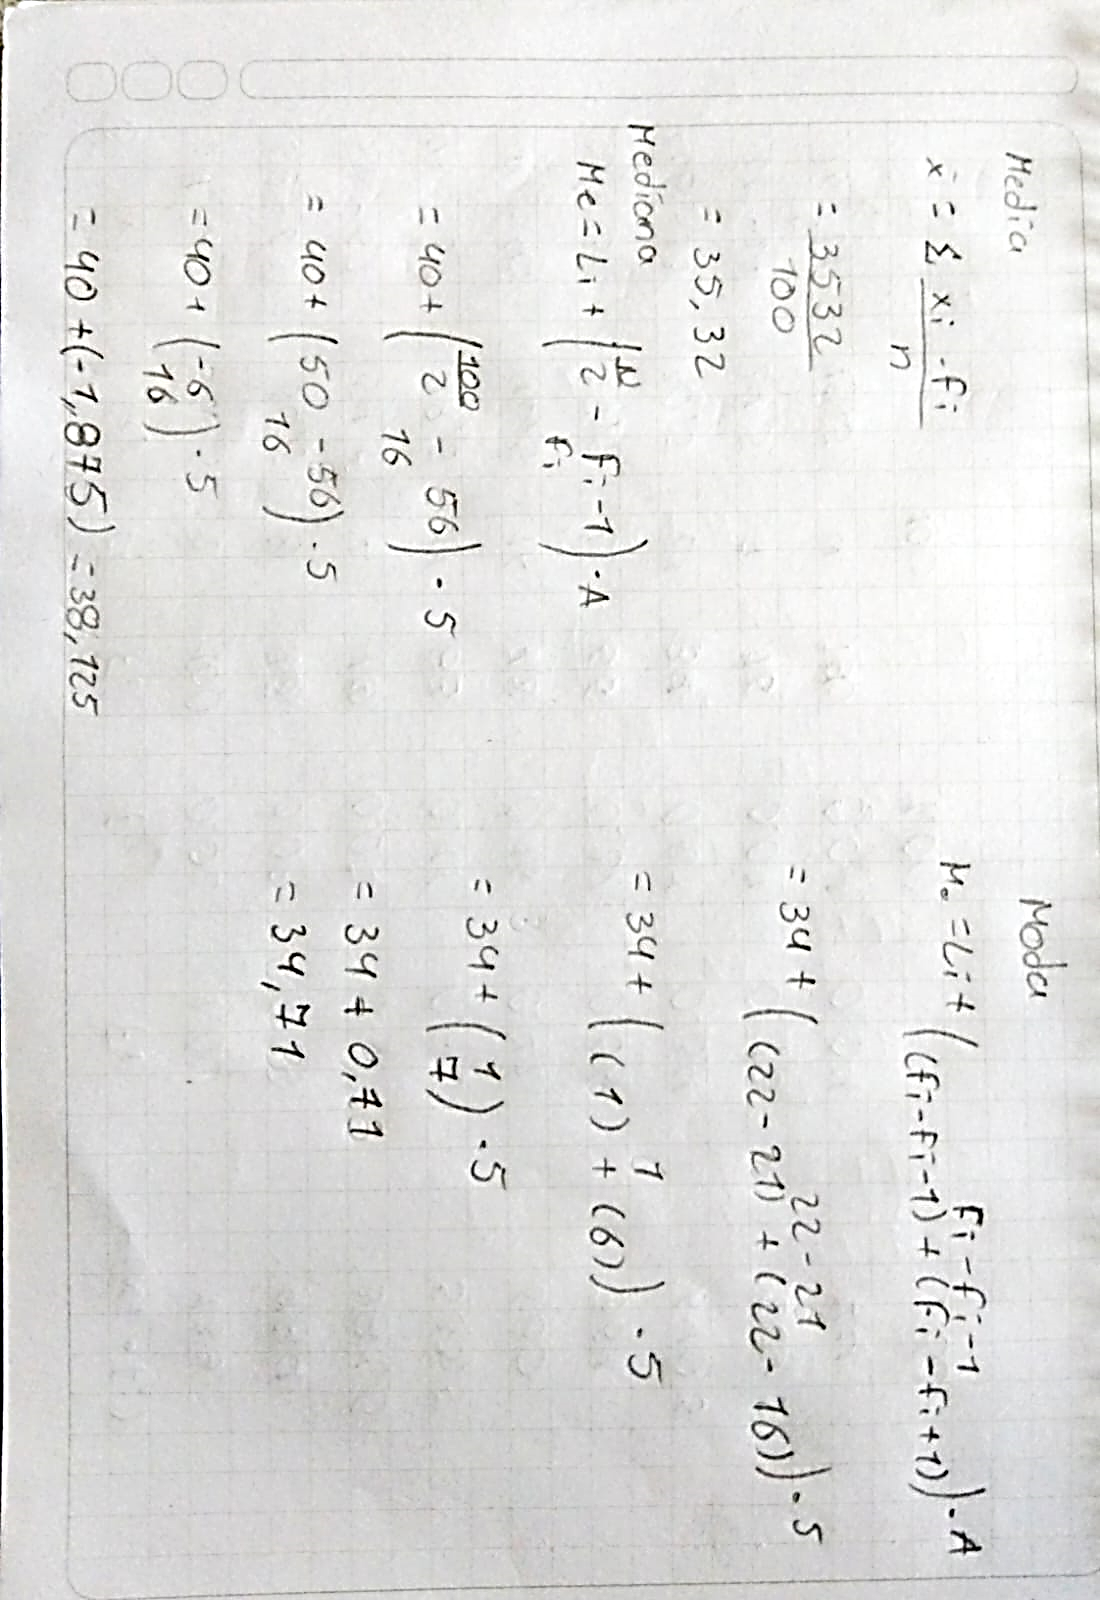 Media
x = Σ xi · fi
n
= 3532
100
= 35,32
Mediana
Me = Li + (N/2 - fi-1) · A
fi
= 40 + (100/2 - 56) · 5
16
= 40 + (50 - 56) · 5
16
= 40 + (-6) · 5
16
= 40 + (-1,875) = 38,125
Moda
fi - fi-1
Mo = Li + ((fi - fi-1) + (fi - fi+1)) · A
22 - 21
= 34 + ((22 - 21) + (22 - 16)) · 5
1
= 34 + ((1) + (6)) · 5
= 34 + (1/7) · 5
= 34 + 0,71
= 34,71